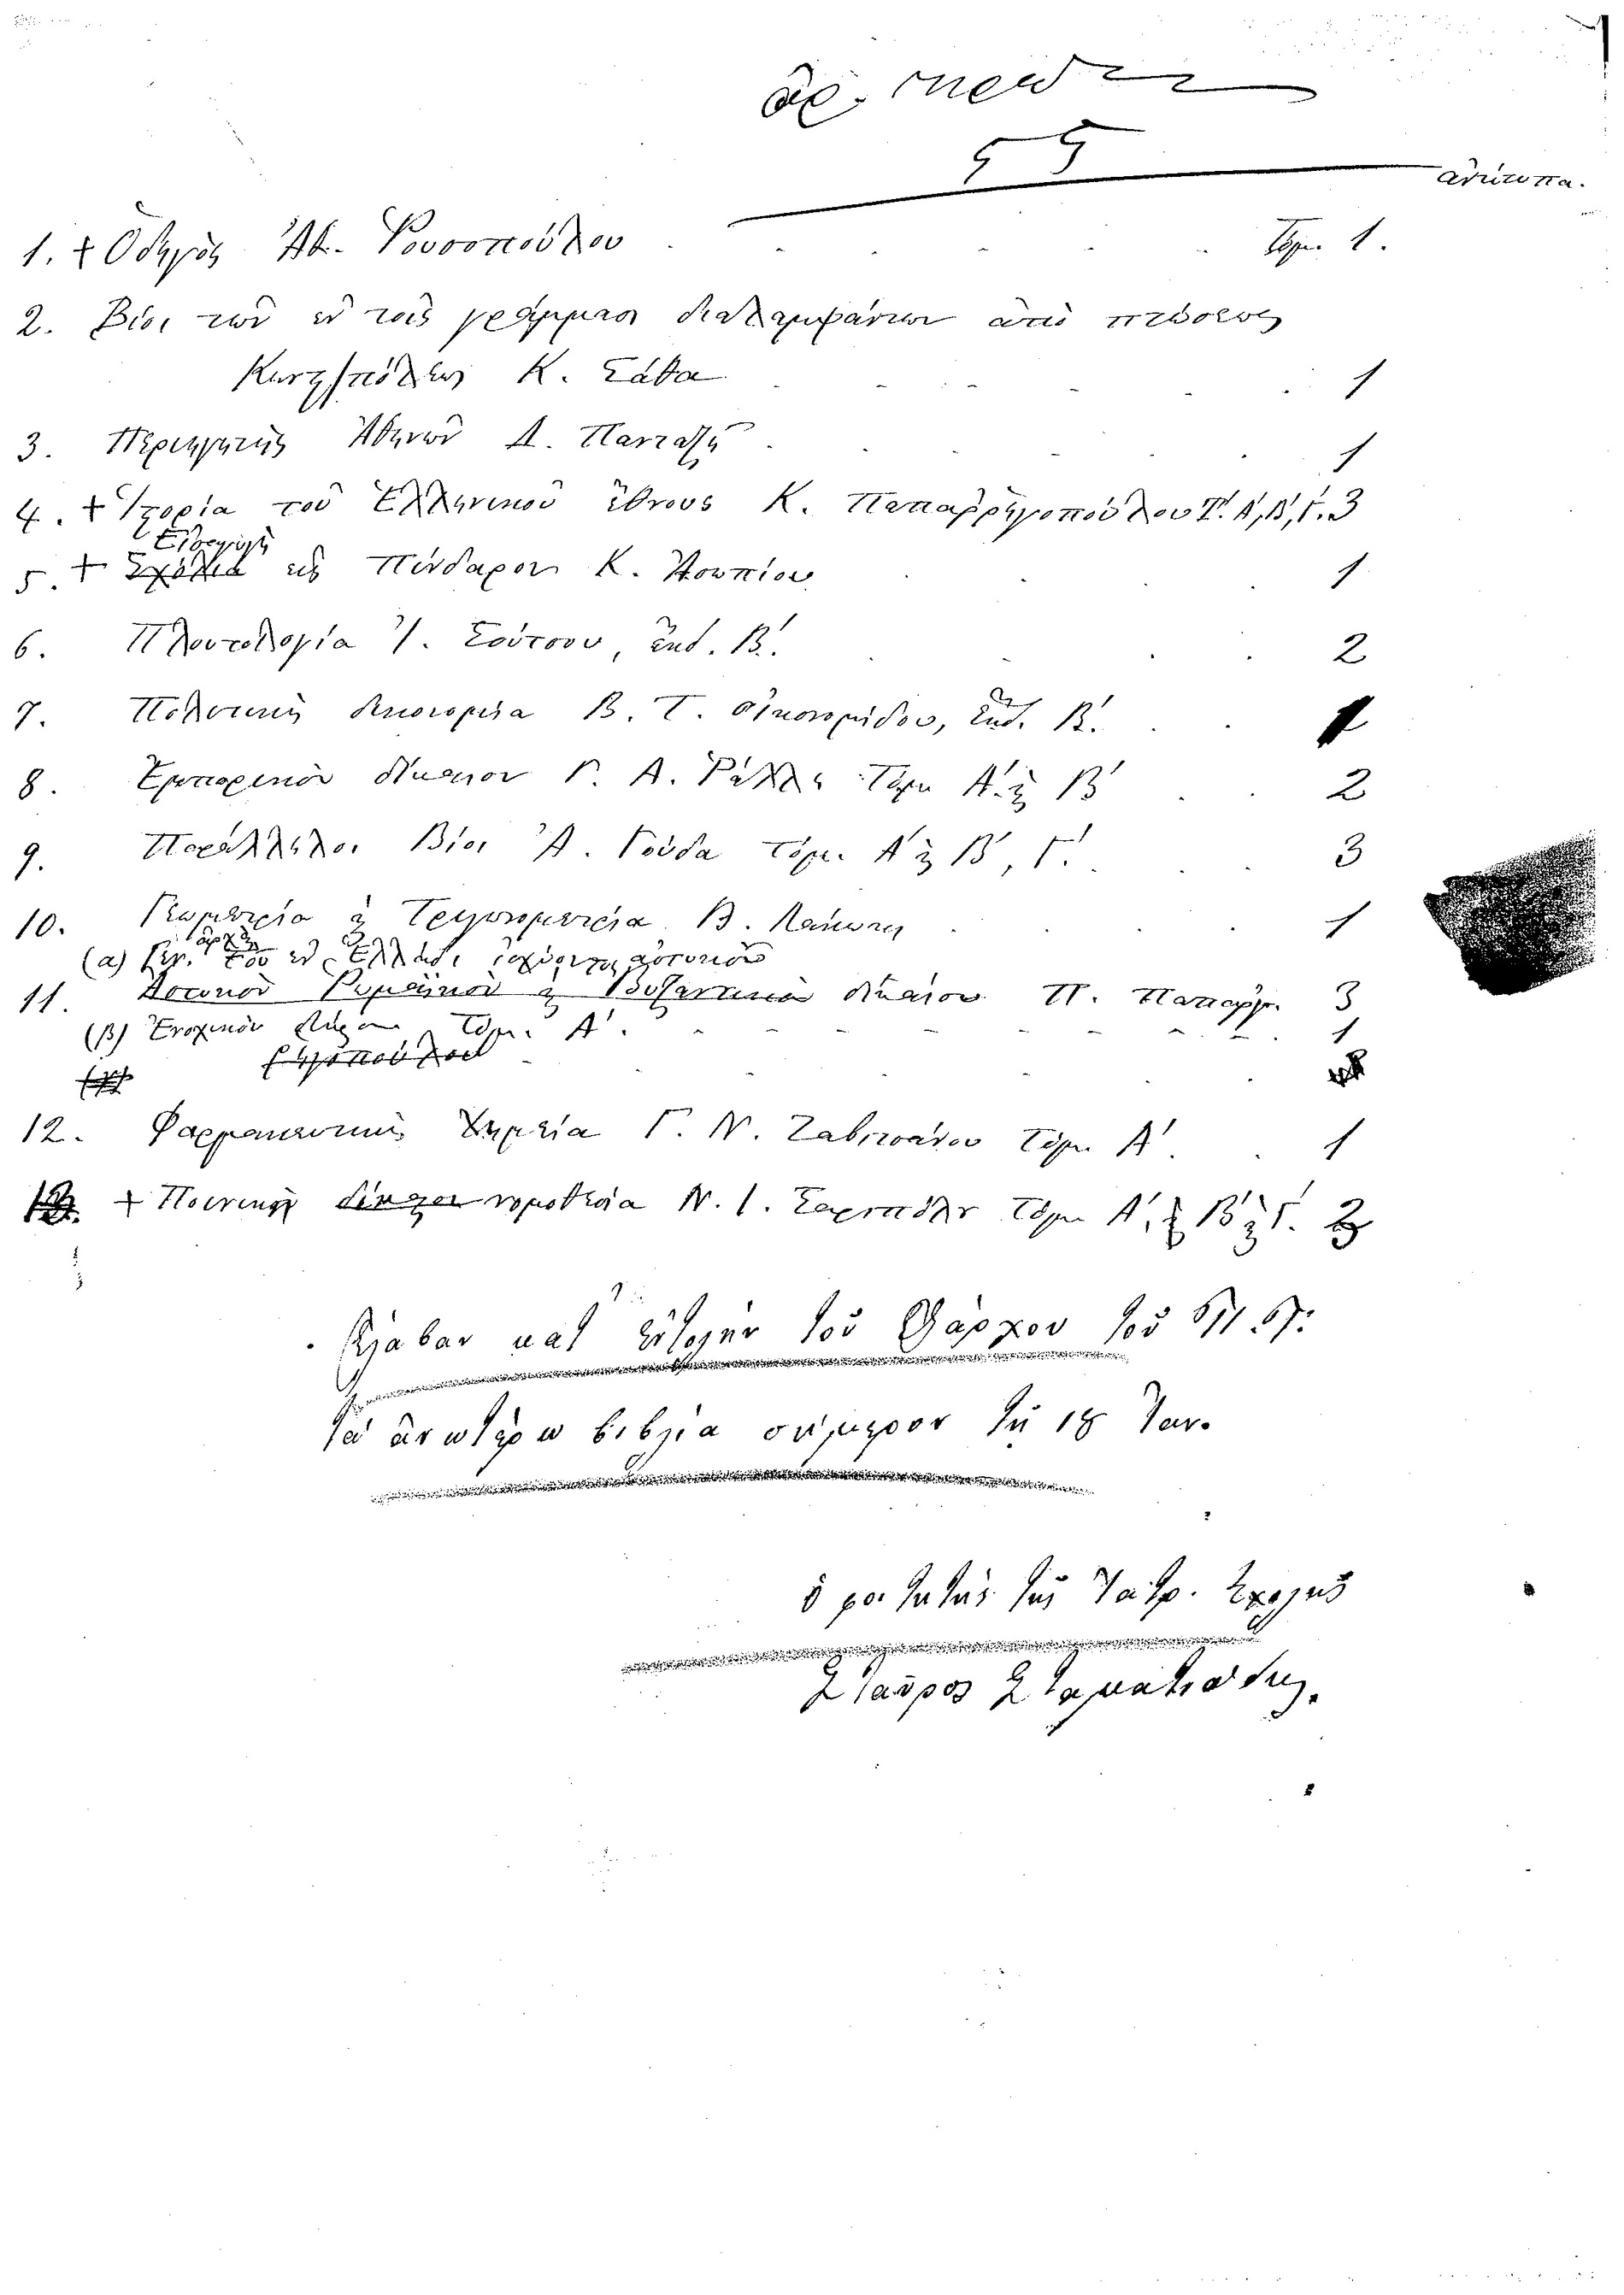 55
ἀντίτυπα.
1. + Ὁδηγὸς Ἀθ. Ῥουσοπούλου Τόμ. 1.
2. Βίοι τῶν ἐν τοῖς γράμμασι διαλαμψάντων ἀπὸ πτώσεως
Κων/πόλεως Κ. Σάθα 1
3. Περιηγητὴς Ἀθηνῶν Δ. Πανταζῆ 1
4. + Ἱστορία τοῦ Ἑλληνικοῦ ἔθνους Κ. Παπαρρηγοπούλου Τ. Α΄, Β΄, Γ΄. 3
Εἰσαγωγὴ
5. + Σχόλια εἰς Πίνδαρον Κ. 1
6. Πλουτολογία Ἰ. Σούτσου, ἐκδ. Β΄. 2
7. Πολιτικὴ Δικονομία Β. Γ. Οἰκονομίδου, ἐκδ. Β΄. 1
8. Ἐμπορικὸν Δίκαιον Γ. Α. Ῥάλλη Τόμ. Α΄. ϗ Β΄ 2
9. Παράλληλοι Βίοι Ἀ. Γούδα τόμ. Α΄ ϗ Β΄, Γ΄. 3
10. Γεωμετρία ϗ Τριγωνομετρία Β. Λάκωνος 1
(α) τοῦ ἐν Ἑλλάδι ἰσχύοντος ἀστυκοῦ
11. Ἀστυκοῦ Ῥωμαϊκοῦ ϗ Βυζαντινοῦ Δικαίου Π. Παπαρρ. 3
(β) Ἐνοχικὸν Δίκαιον Τόμ. Α΄. 1
ρηγοπούλου
12. Φαρμακευτικὴ Χημεία Γ. Ν. Ζαβιτσάνου Τόμ. Α΄ 1
+ Ποινικὴ νομοθεσία Ν. Ι. Σαριπόλου Τόμ. Α΄, ϗ Β΄ ϗ Γ΄. 3
Ἔλαβον κατ᾽ ἐντολὴν τοῦ
τὰ ἀνωτέρω βιβλία σήμερον τῇ 18 Ἰαν.
ὁ φοιτητὴς τῆς Ἰατρ. Σχολῆς
Σταῦρος Σταματιάδης.